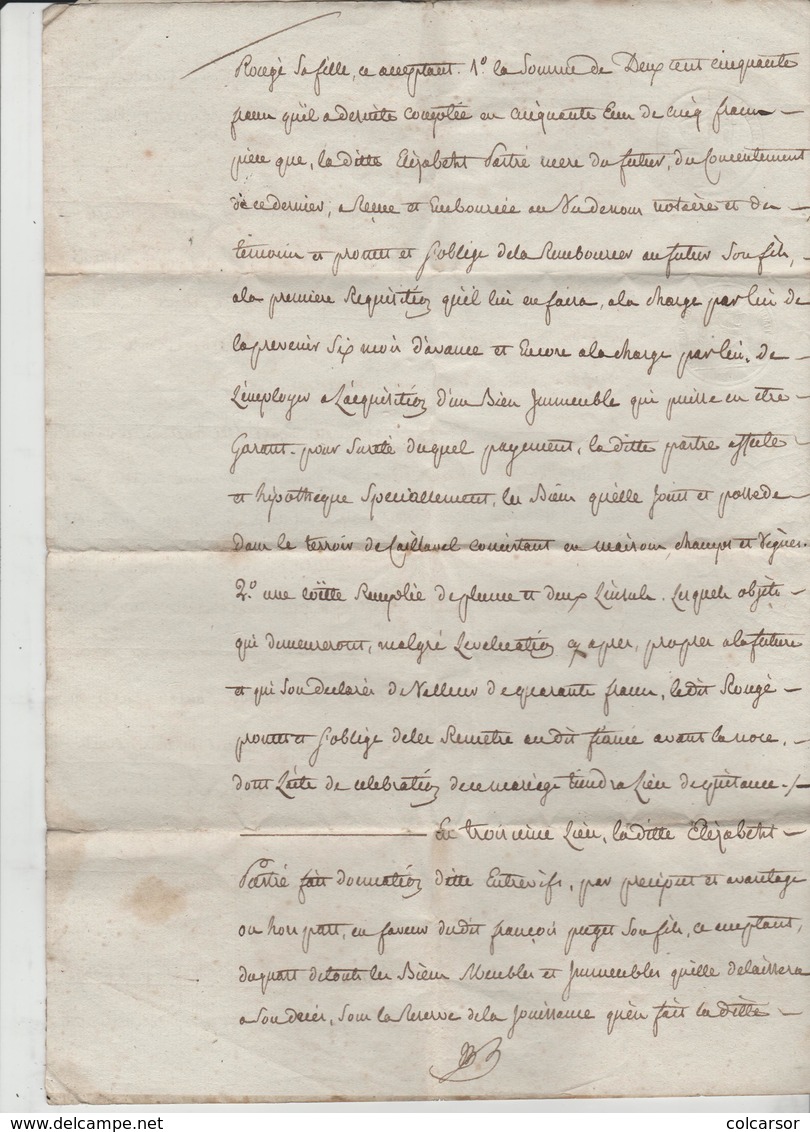 Rougé Sa fille, ce acceptant. 1º la Somme de Deux cent cinquante
francs qu'il a de suite comptée en cinquante Ecus de cinq francs –
pièce que, la ditte Elizabeth Partré mere du futur, du Concentement
de ce dernier, a Reçue et Embourcée au Vu de nous notaire et des –
temoins et promet et S'oblige de la Rembourcer au futur Son fils, –
a la premiere Requisition qu'il lui en faira, a la charge par lui de
la prevenir Six mois d'avance et Encore a la charge par lui, de
L'employer a L'acquisition d'un Bien Immeuble qui puisse en etre –
Garant. pour Sureté duquel payement, la ditte partre affecte
et hipotheque Specialement, les Biens qu'elle Jouit et possede
dans le terroir de Caillavel concistant en maisons, champs et Vignes.
2º une Coitte Remplie de plume et deux Linsuls. Lesquels objets –
qui demeureront, malgré Levaluation cy apres, propres a la future
et qui Son declarés de Valleur de quarante francs, le dit Rougé –
promet et S'oblige de les Remetre au dit fiancé avant la noce,
dont L'acte de celebration de ce mariage tiendra Lieu de quitance. /–
En troisieme Lieu, la ditte Elizabeth –
Partré fait donnation ditte Entrevifs, par preciput et avantage
ou hors part, en faveur du dit françois puget Son fils, ce acceptant,
du quart de touts les Biens Meubles et Immeubles qu'elle delaissera
a Son decés, Sous la Reserve de la Jouissance qu'en fait la ditte –
colcarsor